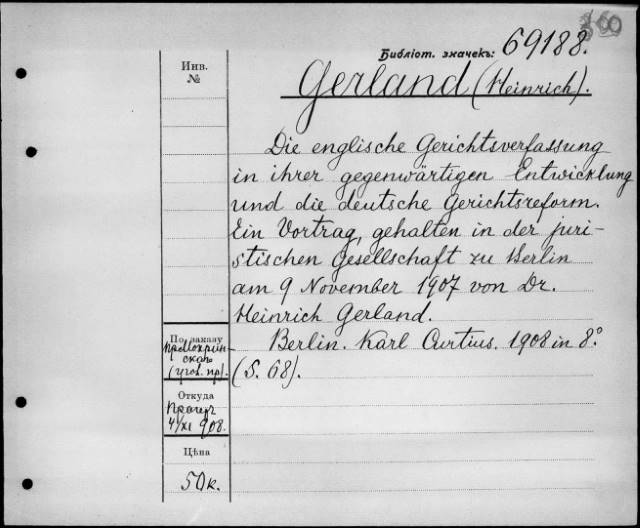 360
Библіот. значекъ: 69188.
Gerland (Heinrich).
Инв.
№
Die englische Gerichtsverfassung
in ihrer gegenwärtigen Entwicklung
und die deutsche Gerichtsreform.
Ein Vortrag, gehalten in der juri-
stischen Gesellschaft zu Berlin
am 9 November 1907 von Dr.
Heinrich Gerland.
Berlin. Karl Curtius. 1908 in 8°
(S. 68).
По заказу
(угол. пр).
Откуда
4/XI 908.
Цѣна
50 к.